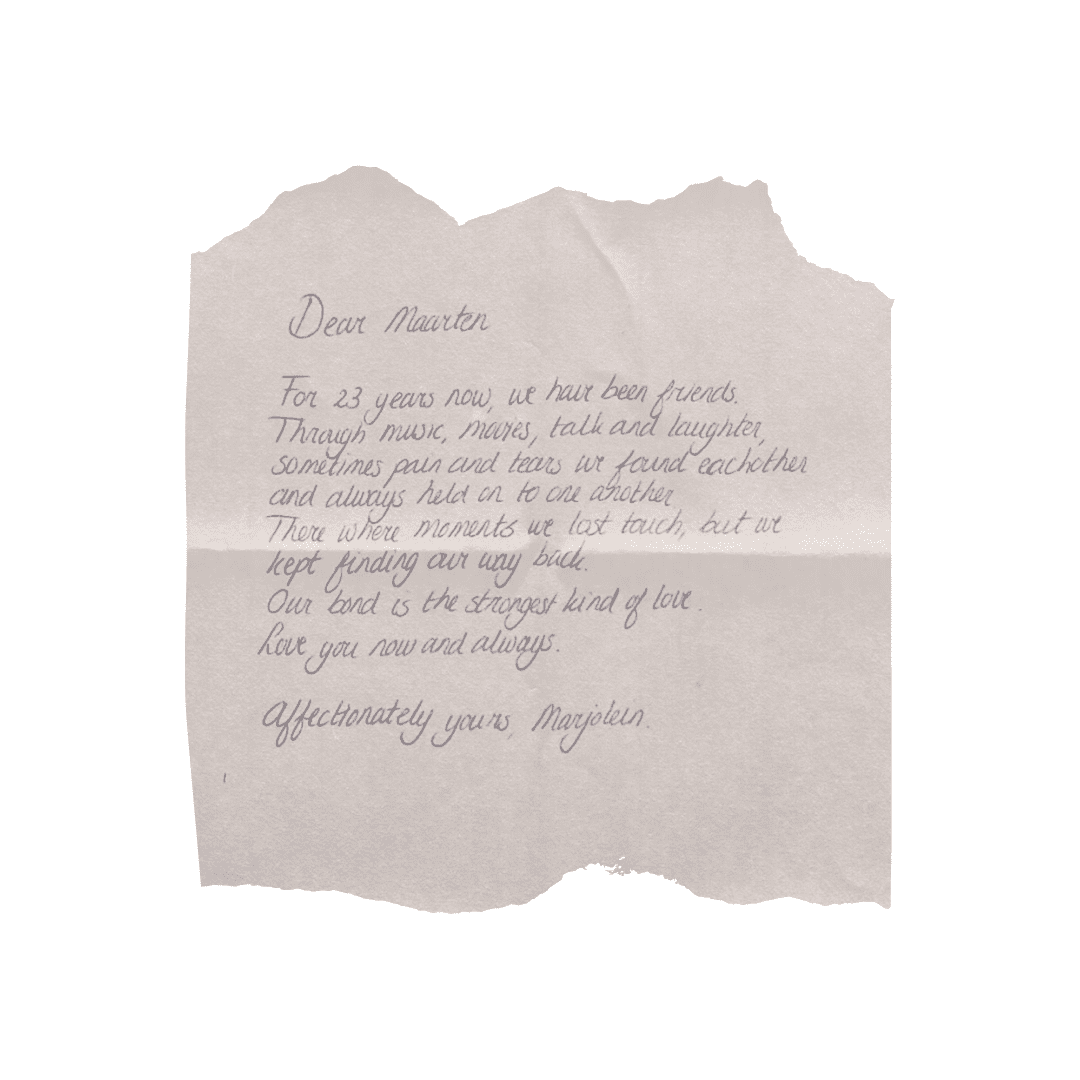 Dear Maarten
For 23 years now, we have been friends.
Through music, movies, talk and laughter,
sometimes pain and tears we found eachother
and always held on to one another
There where moments we lost touch, but we
kept finding our way back.
Our bond is the strongest kind of love.
Love you now and always.
Affectionately yours, Marjolein.